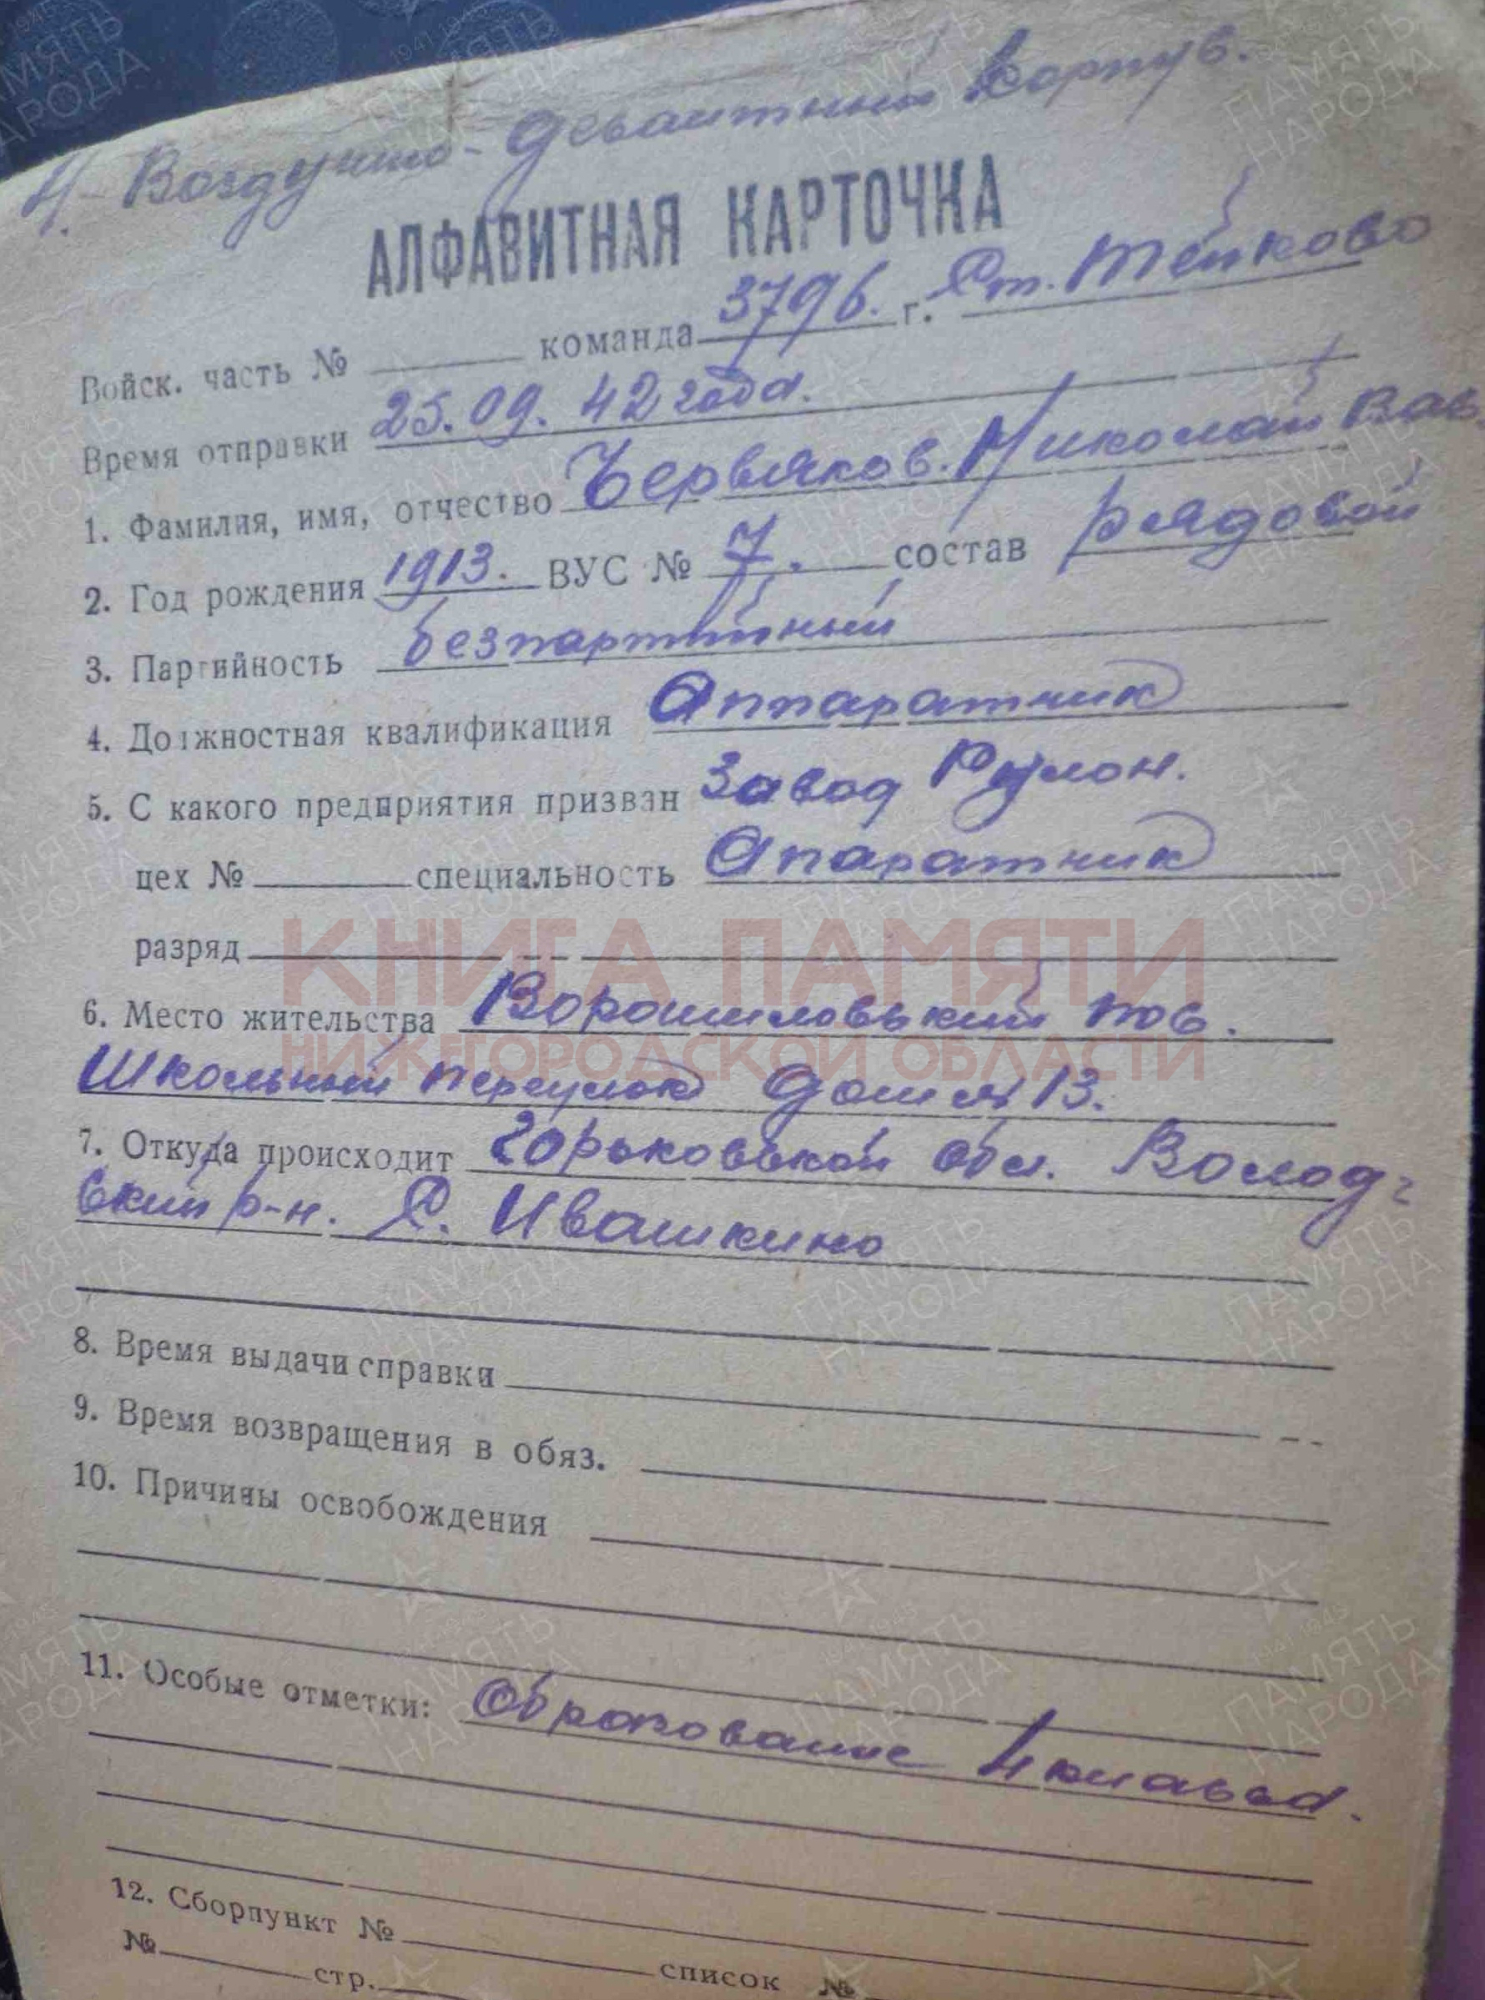 4. Воздушно-десантный корпус.
АЛФАВИТНАЯ КАРТОЧКА
Войск. часть № команда 3796. г. ст. Тейково
Время отправки 25.09.42 года.
1. Фамилия, имя, отчество Червяков. Николай Вас.
2. Год рождения 1913. ВУС № 7. состав рядовой
3. Партийность безпартийный
4. Должностная квалификация Аппаратник
5. С какого предприятия призван Завод Рулон.
цех № специальность Апаратник
разряд
КНИГА ПАМЯТИ
6. Место жительства Ворошиловский пос.
НИЖЕГОРОДСКОЙ ОБЛАСТИ
Школьный переулок дом № 13.
7. Откуда происходит Горьковской обл. Волод-
ский р-н. с. Ивашкино
8. Время выдачи справки
9. Время возвращения в обяз.
10. Причины освобождения
11. Особые отметки: Образование 4 класса.
12. Сборпункт №
список №
№ стр.